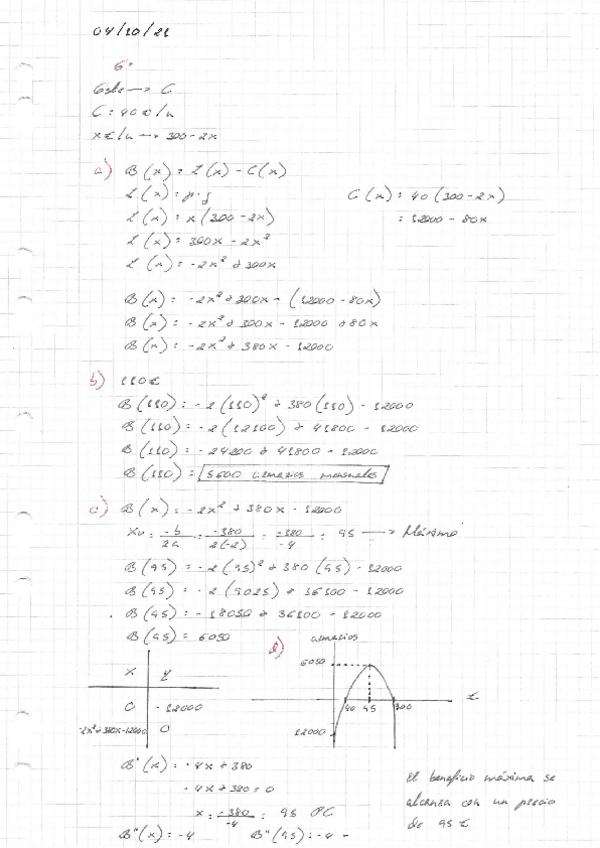 04/10/21
6.
C
C = 40 €/u
x €/u → 300 - 2x
a) B(x) = I(x) - C(x)
I(x) = p · q
C(x) = 40(300 - 2x)
I(x) = x(300 - 2x)
= 12000 - 80x
I(x) = 300x - 2x²
I(x) = -2x² + 300x
B(x) = -2x² + 300x - (12000 - 80x)
B(x) = -2x² + 300x - 12000 + 80x
B(x) = -2x² + 380x - 12000
b) 110€
B(110) = -2(110)² + 380(110) - 12000
B(110) = -2(12100) + 41800 - 12000
B(110) = -24200 + 41800 - 12000
B(110) = 5600 armarios mensuales
c) B(x) = -2x² + 380x - 12000
Xv = -b/2a = -380/2(-2) = -380/-4 = 95 → Máximo
B(95) = -2(95)² + 380(95) - 12000
B(95) = -2(9025) + 36100 - 12000
B(95) = -18050 + 36100 - 12000
B(95) = 6050
d) armarios
6050
x y
0 -12000
-2x²+380x-12000 0
40 95 300 €
12000
B'(x) = -4x + 380
-4x + 380 = 0
x = -380/-4 = 95 PC
B''(x) = -4 B''(95) = -4 -
El beneficio máximo se
alcanza con un precio
de 95 €